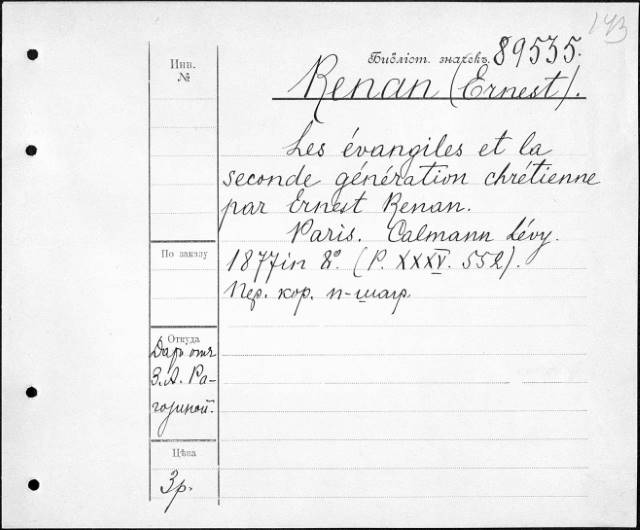 143
Библіот. значекъ. 89535.
Инв.
№
Renan (Ernest).
Les évangiles et la
seconde génération chrétienne
par Ernest Renan.
Paris. Calmann Lévy.
По заказу
1877 in 8º. (P. XXXV. 552).
Пер. кор. п-шагр.
Откуда
Даръ отъ
З.А. Ра-
гозиной.
Цѣна
3р.